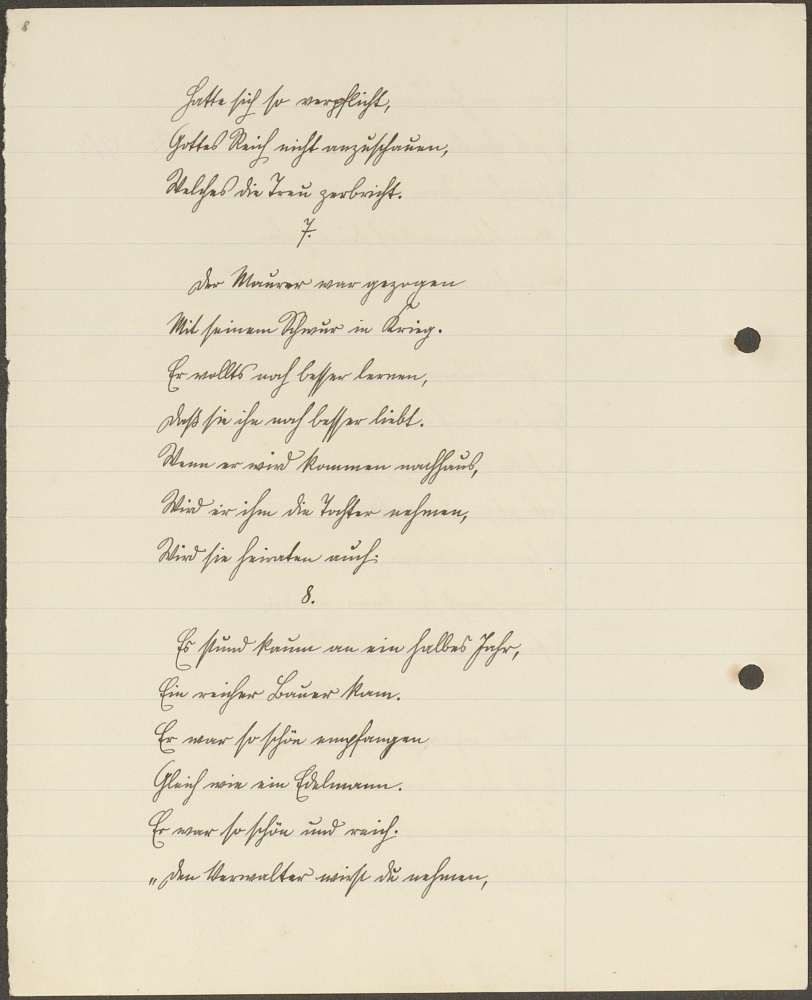 8
Hatte sich so verpflicht,
Gottes Reich nicht anzuschauen,
Welches die Treu zerbricht.
7.
Der Maurer war gezogen
Mit seinem Schwur in Krieg.
Er wollts noch besser lernen,
Daß sie ihn noch besser liebt.
Wenn er wird kommen nachhaus,
Wird er ihm die Tochter nehmen,
Wird sie heiraten auch.
8.
Es stund kaum an ein halbes Jahr,
Ein reicher Bauer kam.
Er war so schön empfangen
Gleich wie ein Edelmann.
Er war so schön und reich.
„Den Verwalter wirst du nehmen,